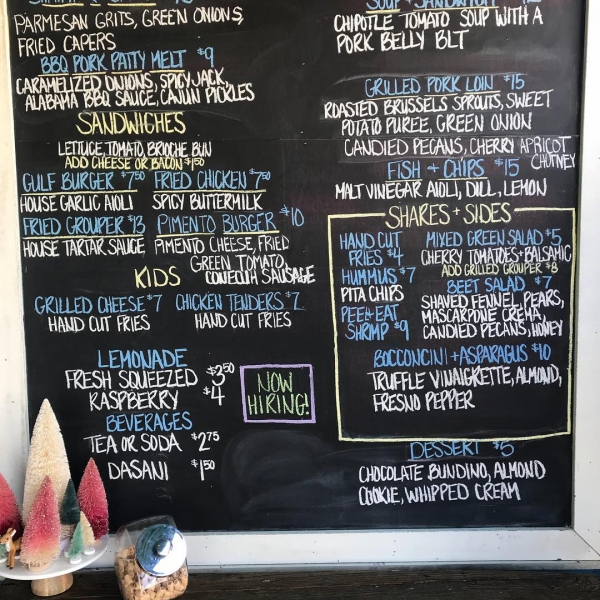 PARMESAN GRITS, GREEN ONIONS,
FRIED CAPERS
BBQ PORK PATTY MELT $9
CARAMELIZED ONIONS, SPICY JACK,
ALABAMA BBQ SAUCE, CAJUN PICKLES
SANDWICHES
LETTUCE, TOMATO, BRIOCHE BUN
ADD CHEESE OR BACON $1.50
GULF BURGER $7.50 FRIED CHICKEN $7.50
HOUSE GARLIC AIOLI SPICY BUTTERMILK
FRIED GROUPER $13 PIMENTO BURGER $10
HOUSE TARTAR SAUCE PIMENTO CHEESE, FRIED
GREEN TOMATO,
CONECUH SAUSAGE
KIDS
GRILLED CHEESE $7 CHICKEN TENDERS $7
HAND CUT FRIES HAND CUT FRIES
LEMONADE
FRESH SQUEEZED $3.50
RASPBERRY $4
BEVERAGES
TEA OR SODA $2.75
DASANI $1.50
NOW
HIRING!
SOUP + SANDWICH
CHIPOTLE TOMATO SOUP WITH A
PORK BELLY BLT
GRILLED PORK LOIN $15
ROASTED BRUSSELS SPROUTS, SWEET
POTATO PUREE, GREEN ONION
CANDIED PECANS, CHERRY APRICOT
CHUTNEY
FISH + CHIPS $15
MALT VINEGAR AIOLI, DILL, LEMON
SHARES + SIDES
HAND CUT
FRIES $4
HUMMUS $7
PITA CHIPS
PEEL+EAT
SHRIMP $9
MIXED GREEN SALAD $5
CHERRY TOMATOES+BALSAMIC
ADD GRILLED GROUPER $8
BEET SALAD $7
SHAVED FENNEL, PEARS,
MASCARPONE CREMA,
CANDIED PECANS, HONEY
BOCCONCINI + ASPARAGUS $10
TRUFFLE VINAIGRETTE, ALMOND,
FRESNO PEPPER
DESSERT $5
CHOCOLATE BUNDINO, ALMOND
COOKIE, WHIPPED CREAM